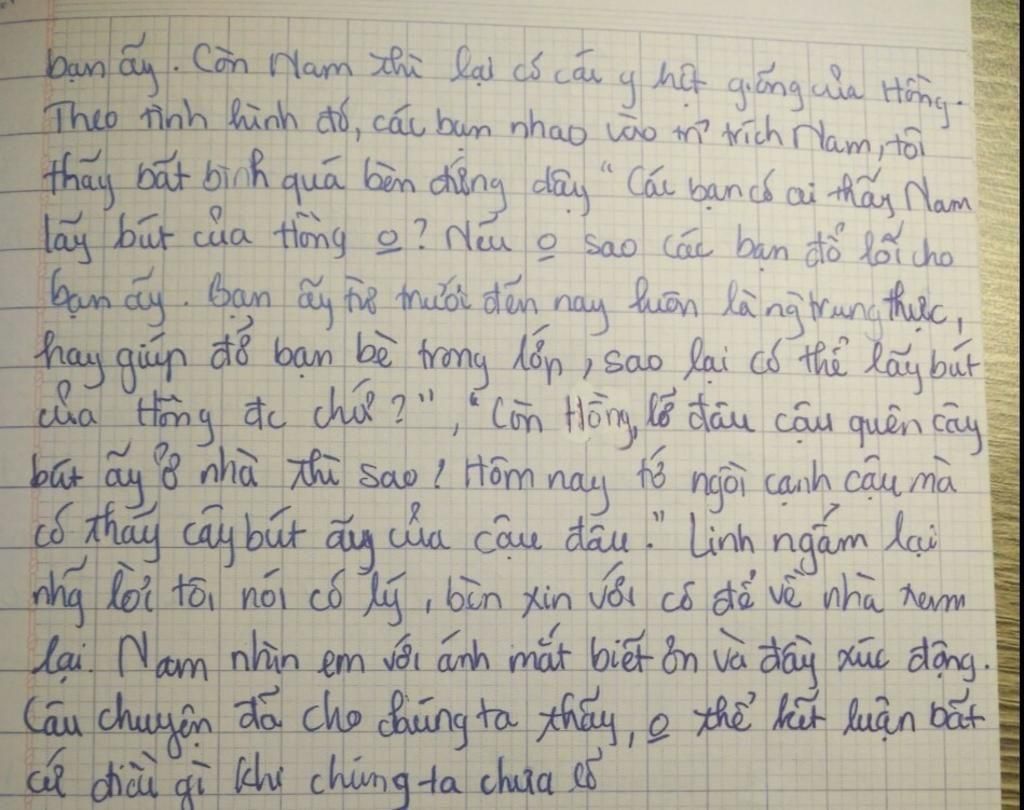 bạn ấy. Còn Nam thì lại có cái y hệt giống của Hồng.
Theo tình hình đó, các bạn nhao vào chỉ trích Nam, tôi
thấy bất bình quá bèn đứng dậy "Các bạn có ai thấy Nam
lấy bút của Hồng o? Nếu o sao các bạn đổ lỗi cho
bạn ấy. Bạn ấy từ trước đến nay luôn là ng trung thực,
hay giúp đỡ bạn bè trong lớp, sao lại có thể lấy bút
của Hồng đc chứ?", "Còn Hồng, lỡ đâu cậu quên cây
bút ấy ở nhà thì sao! Hôm nay tớ ngồi cạnh cậu mà
có thấy cây bút ấy của cậu đâu." Linh ngẫm lại
nhg lời tôi nói có lý, bèn xin với cô để về nhà xem
lại. Nam nhìn em với ánh mắt biết ơn và đầy xúc động.
Câu chuyện đã cho chúng ta thấy, o thể kết luận bất
cứ điều gì khi chúng ta chưa có